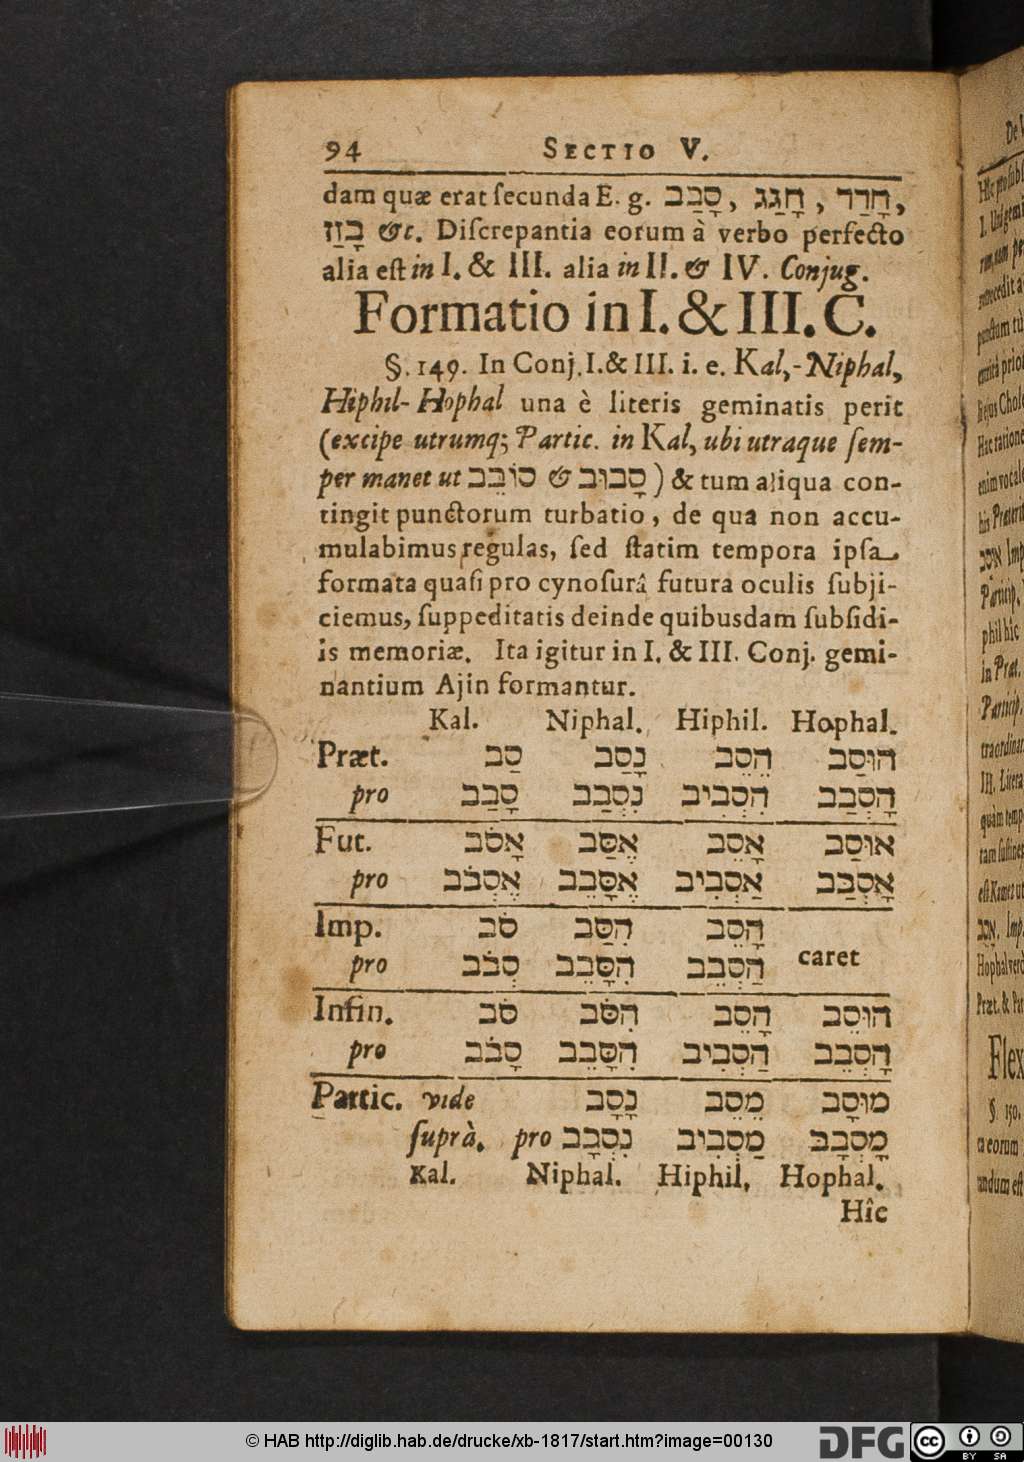 94 SECTIO V.
dam quæ erat ſecunda E. g. סָבַב, חָגַג, חָרַר,
בָזַז &c. Diſcrepantia eorum à verbo perfecto
alia eſt in I. & III. alia in II. & IV. Conjug.
Formatio in I. & III. C.
§. 149. In Conj. I. & III. i. e. Kal,-Niphal,
Hiphil-Hophal una è literis geminatis perit
(excipe utrumq; Partic. in Kal, ubi utraque ſem-
per manet ut סוֹבֵב & סָבוּב) & tum aliqua con-
tingit punctorum turbatio, de qua non accu-
mulabimus regulas, ſed ſtatim tempora ipſa
formata quaſi pro cynoſurâ futura oculis ſubji-
ciemus, ſuppeditatis deinde quibusdam ſubſidi-
is memoriæ. Ita igitur in I. & III. Conj. gemi-
nantium Ajin formantur.
Kal. Niphal. Hiphil. Hophal.
Præt. סַב נָסַב הֵסֵב הוּסַב
pro סָבַב נִסְבַב הִסְבִיב הָסְבַב
Fut. אָסֹב אֶסַּב אָסֵב אוּסַב
pro אֶסְבֹב אֶסָּבֵב אַסְבִיב אָסְבַּב
Imp. סֹב הִסַּב הָסֵב
pro סְבֹב הִסָּבֵב הַסְבֵב caret
Infin. סֹב הִסֹּב הָסֵב הוּסֵב
pro סָבֹב הִסָּבֵב הַסְבִיב הָסְבֵב
Partic. vide נָסָב מֵסֵב מוּסָב
ſuprà. pro נִסְבָב מַסְבִיב מָסְבָב
Kal. Niphal. Hiphil. Hophal.
Hîc
© HAB http://diglib.hab.de/drucke/xb-1817/start.htm?image=00130
DFG
cc BY SA